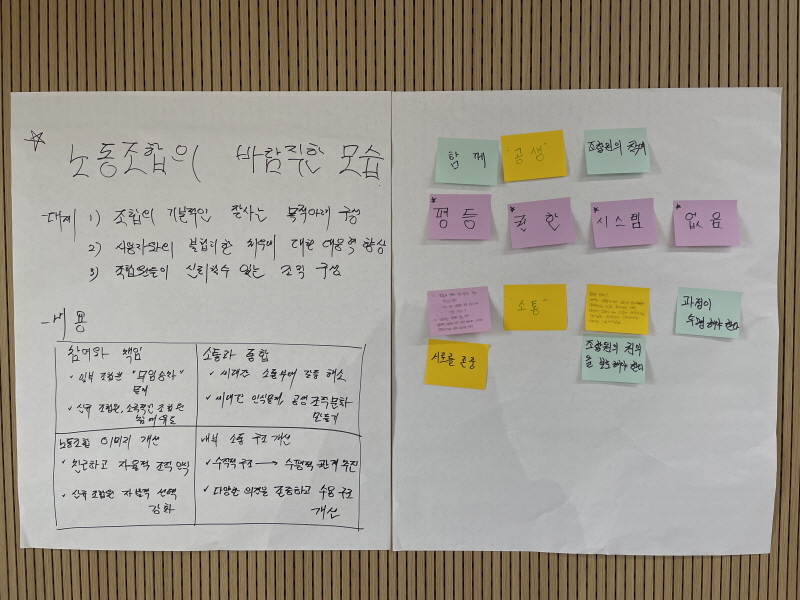 ☆ 노동조합의 바람직한 모습
- 대제 1) 조합의 기본적인 질서는 목적아래 구성
2) 사용자와의 불합리한 처우에 대한 대응력 향상
3) 조합원들이 신뢰할수 있는 조직 구성
- 내용
참여와 책임
✓ 일부 조합원 "무임승차" 문제
✓ 신규 조합원, 소극적인 조합원
참여유도
소통과 통합
✓ 세대간 소통부재 갈등 해소
✓ 세대간 인식문제, 공생 조직문화
만들기
노동조합 이미지 개선
✓ 친근하고 자율적 조직 인식
✓ 신규 조합원 자발적 선택
강화
내부 소통 구조 개선
✓ 수직적 구조 → 수평적 관계 추진
✓ 다양한 의견을 존중하고 수용 구조
개선
함께
"공생"
조합원의 참여
평등
권한
시스템
없음
"소통"
과정이
수평해야 한다
서로를 존중
조합원의 권익
을 해야 한다